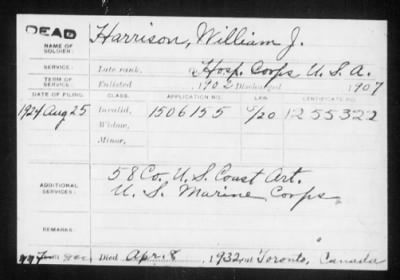 DEAD
NAME OF SOLDIER: Harrison, William J.
SERVICE: Late rank, Hosp. Corps U.S.A.
TERM OF SERVICE: Enlisted 1902 Discharged 1907
DATE OF FILING. CLASS. APPLICATION NO. LAW. CERTIFICATE NO.
1924 Aug 25 Invalid, 1506155 6/20. 1255322
Widow,
Minor,
ADDITIONAL SERVICES: 58 Co. U.S. Coast Art.
U.S. Marine Corps
REMARKS:
Died Apr. 8, 1932, at Toronto, Canada